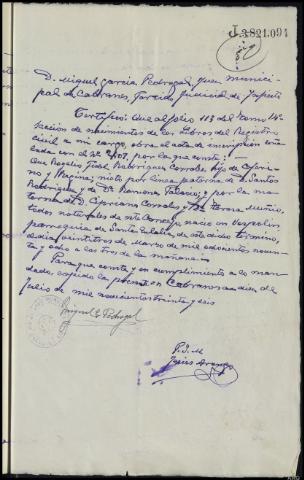 J.3821.094
D. Miguel García Pedrayal, Juez munici-
pal de Cabranes, Partido judicial de Infiesto
Certifico: Que al folio 118 del tomo 14º
sección de nacimientos de los libros del Registro
civil a mi cargo, obra el acta de inscripción seña-
lada con el nº 2107, por la que consta:
Que Rogelio Fidel hijo de Cipria-
no y Regina; nieto por línea paterna de D. Santos
Rodríguez y de Dª Ramona Palacio; y por la ma-
terna de D. Cipriano Corrales y Teresa
todos naturales de este Concejo, nació en
parroquia de Santa Eulalia, de este dicho término,
el día veintitrés de Marzo de mil ochocientos noven-
ta y ocho a las tres de la mañana
Para que conste y en cumplimiento a lo man-
dado, expido la presente en Cabranes a diez de
Julio de mil novecientos treinta y seis
Miguel G. Pedrayal
P.S.M.
Jesús Arango